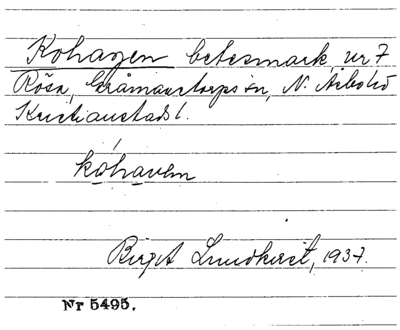 Kohagen betesmark, nr 7
Röså, Gråmanstorps sn, N. Åsbo hd
Kristianstads l.
kóhav́en
Birgit Lundkvist, 1937.
Nr 5495.